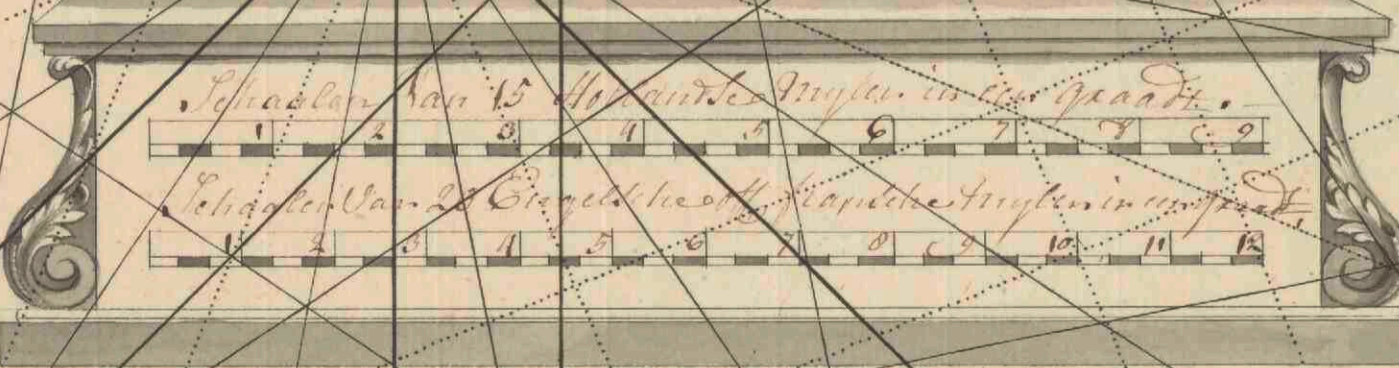 Schaalen Van 15 Hollandse Mylen in een graadt.
1 2 3 4 5 6 7 8 9
Schaalen Van 20 Engelsche of Fransche Mylen in een graadt,
1 2 3 4 5 6 7 8 9 10 11 12